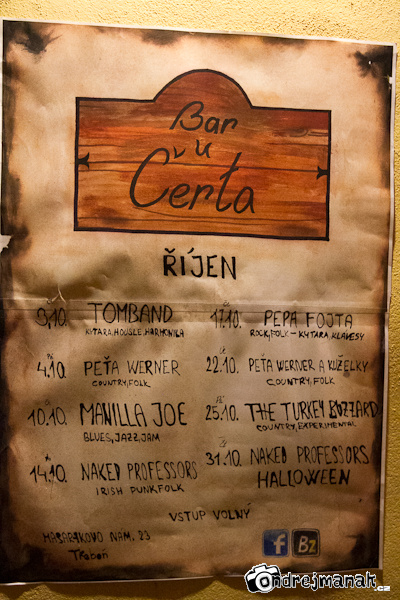 Bar
u
Čerta
ŘÍJEN
3.10. TOMBAND
KYTARA, HOUSLE, HARMONIKA
Pá
4.10. PEŤA WERNER
COUNTRY, FOLK
10.10. MANILLA JOE
BLUES, JAZZ, JAM
14.10. NAKED PROFESSORS
IRISH PUNK, FOLK
Čt
17.10. PEPA FOJTA
ROCK, FOLK - KYTARA, KLAVESY
22.10. PEŤA WERNER A KUŽELKY
COUNTRY, FOLK
Pá
25.10. THE TURKEY BUZZARD
COUNTRY, EXPERIMENTAL
Čt
31.10. NAKED PROFESSORS
HALLOWEEN
VSTUP VOLNÝ
MASARYKOVO NAM. 23
Třeboň
f
Bz
ondrejmanak.cz